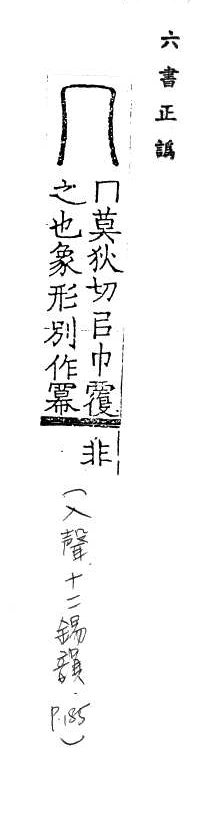 六書正譌
冂
冂莫狄切㠯巾覆
之也象形別作冪
非
(入聲.十二錫韻.
P.185)